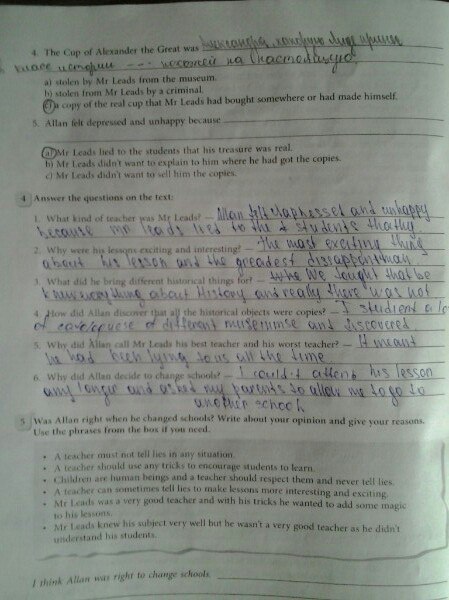 4. The Cup of Alexander the Great was Александра, которую Лидс принёс
в класс истории --- похожей на настоящую
a) stolen by Mr Leads from the museum.
b) stolen from Mr Leads by a criminal.
c) a copy of the real cup that Mr Leads had bought somewhere or had made himself.
5. Allan felt depressed and unhappy because
a) Mr Leads lied to the students that his treasure was real.
b) Mr Leads didn't want to explain to him where he had got the copies.
c) Mr Leads didn't want to sell him the copies.
4 Answer the questions on the text:
1. What kind of teacher was Mr Leads? – Allan felt and unhappy
because mr leads lied to the students
2. Why were his lessons exciting and interesting? – The most exciting thing
about his lesson and the greatest
3. What did he bring different historical things for? – We that he
know everything about History and really there was not
4. How did Allan discover that all the historical objects were copies? – I
of of different and discovered
5. Why did Allan call Mr Leads his best teacher and his worst teacher? – It meant
he had been lying to us all the time
6. Why did Allan decide to change schools? – I attend his lesson
any longer and asked my parents to allow me to go to
another school
5 Was Allan right when he changed schools? Write about your opinion and give your reasons.
Use the phrases from the box if you need.
• A teacher must not tell lies in any situation.
• A teacher should use any tricks to encourage students to learn.
• Children are human beings and a teacher should respect them and never tell lies.
• A teacher can sometimes tell lies to make lessons more interesting and exciting.
• Mr Leads was a very good teacher and with his tricks he wanted to add some magic
to his lessons.
• Mr Leads knew his subject very well but he wasn't a very good teacher as he didn't
understand his students.
I think Allan was right to change schools.